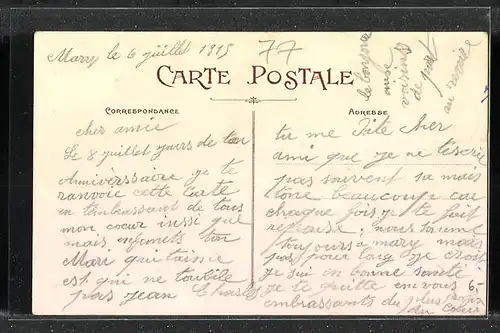 Marry le 6 juillet 1915
77
CARTE POSTALE
CORRESPONDANCE
ADRESSE
cher amie
Le 8 juillet jours de ton
Anniverssaire je te
ranvoie cette carte
en tembrassant de tous
mon cœur inssi que
mais enfants ton
Mari qui taime
est qui ne toublie
pas jean Charles
tu me dite cher
ami que je ne técris
pas souvent sa mais
tone beaucoup car
chaque fois je te fait
reponse; nous somme
toujours a mary mais
pas pour long je croit
je sui en bonne santé
je te quitte en vous 6,-
embrassants du plus
du cœur
le bonjour
de
au revoire